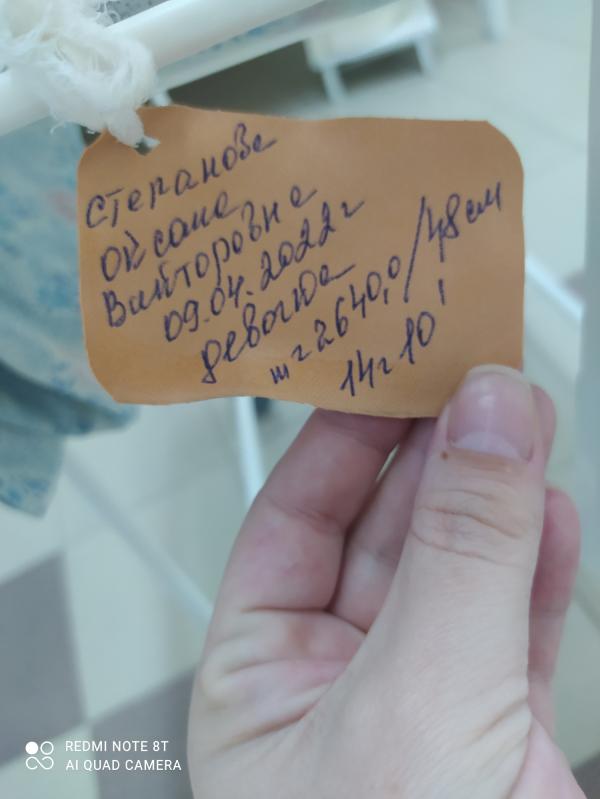 Степанова
Оксана
Викторовна
09.04.2022г
девочка
m=2640,0/48см
14ч 10'
REDMI NOTE 8T
AI QUAD CAMERA